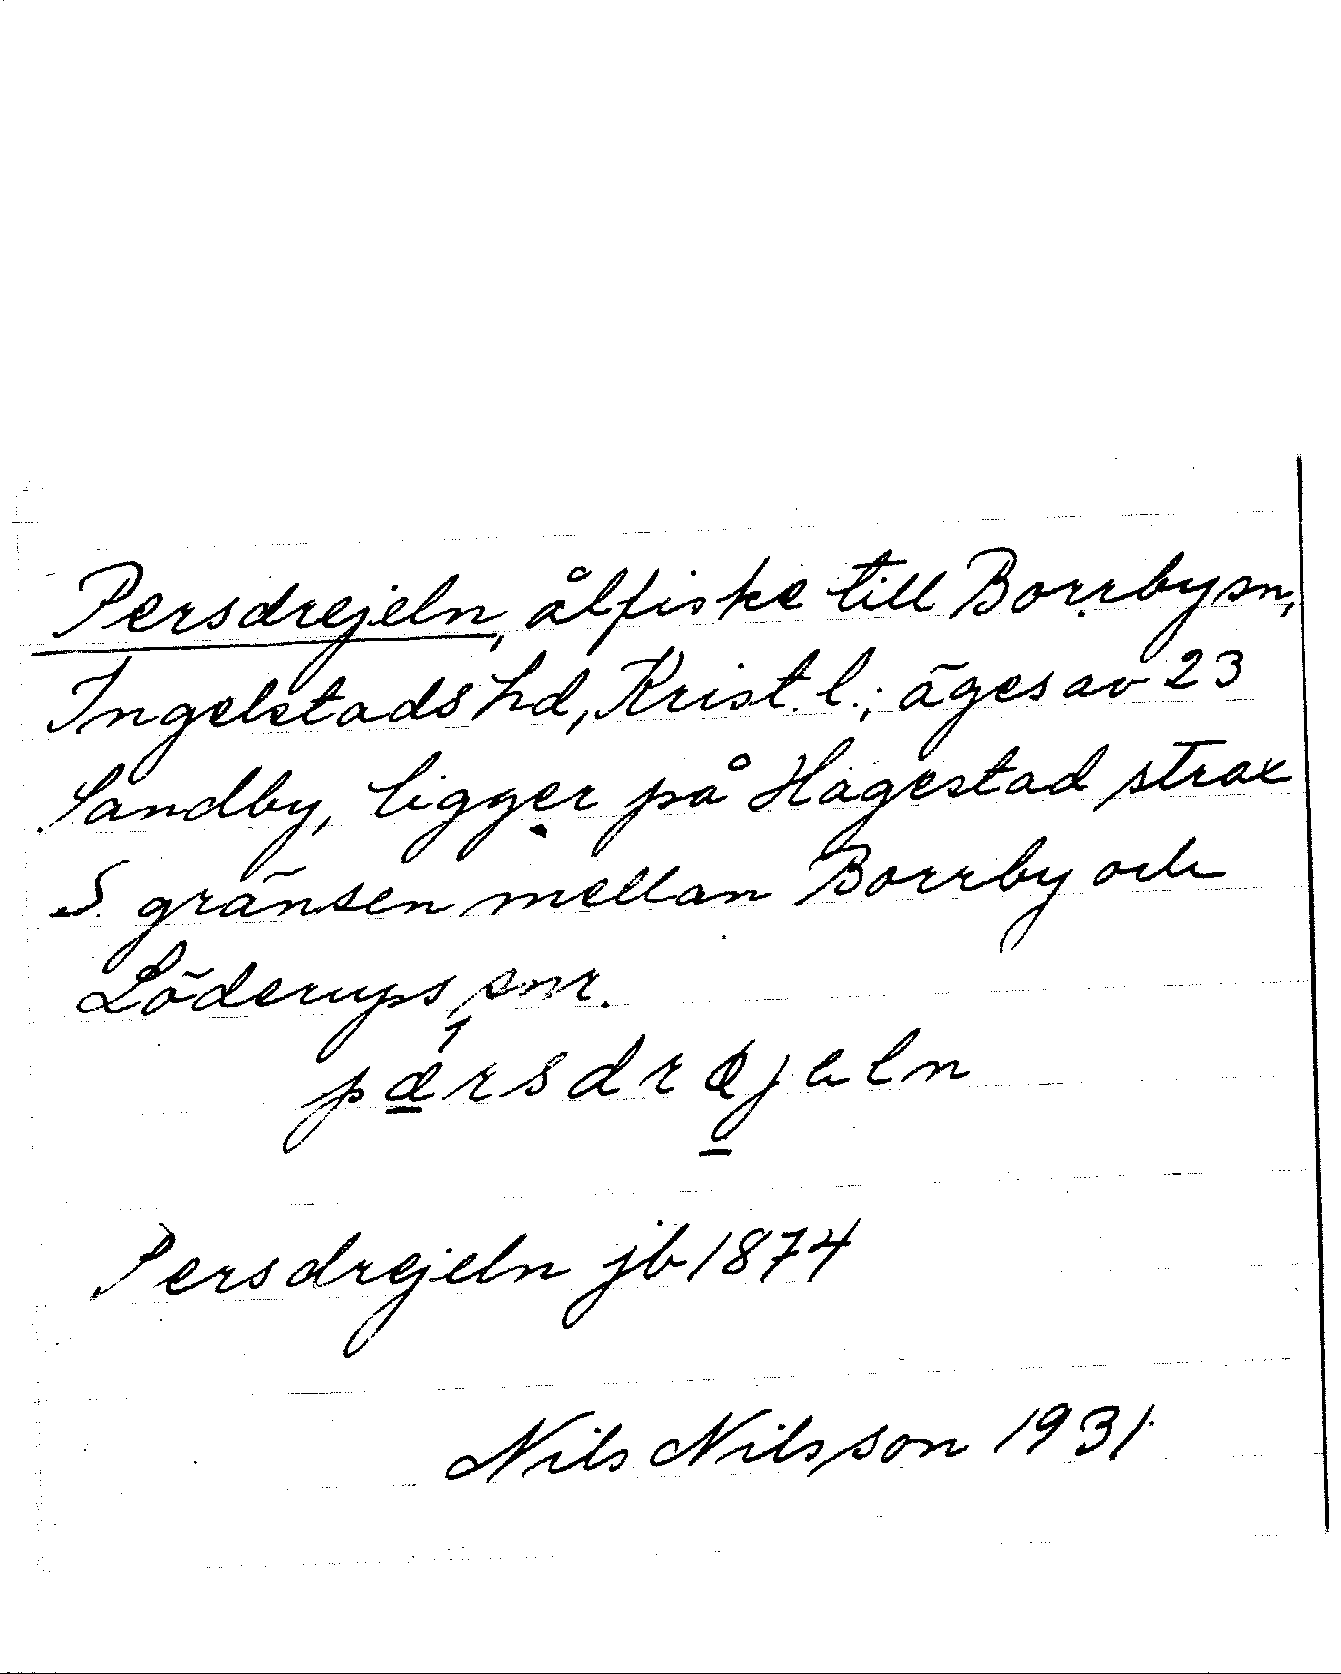 Persdrejeln, ålfiske till Borrby sn,
Ingelstads hd, Krist. l.; äges av 23
Sandby, ligger på Hagestad strax
S. gränsen mellan Borrby och
Löderups snr.
Persdrejeln jb 1874
Nils Nilsson 1931